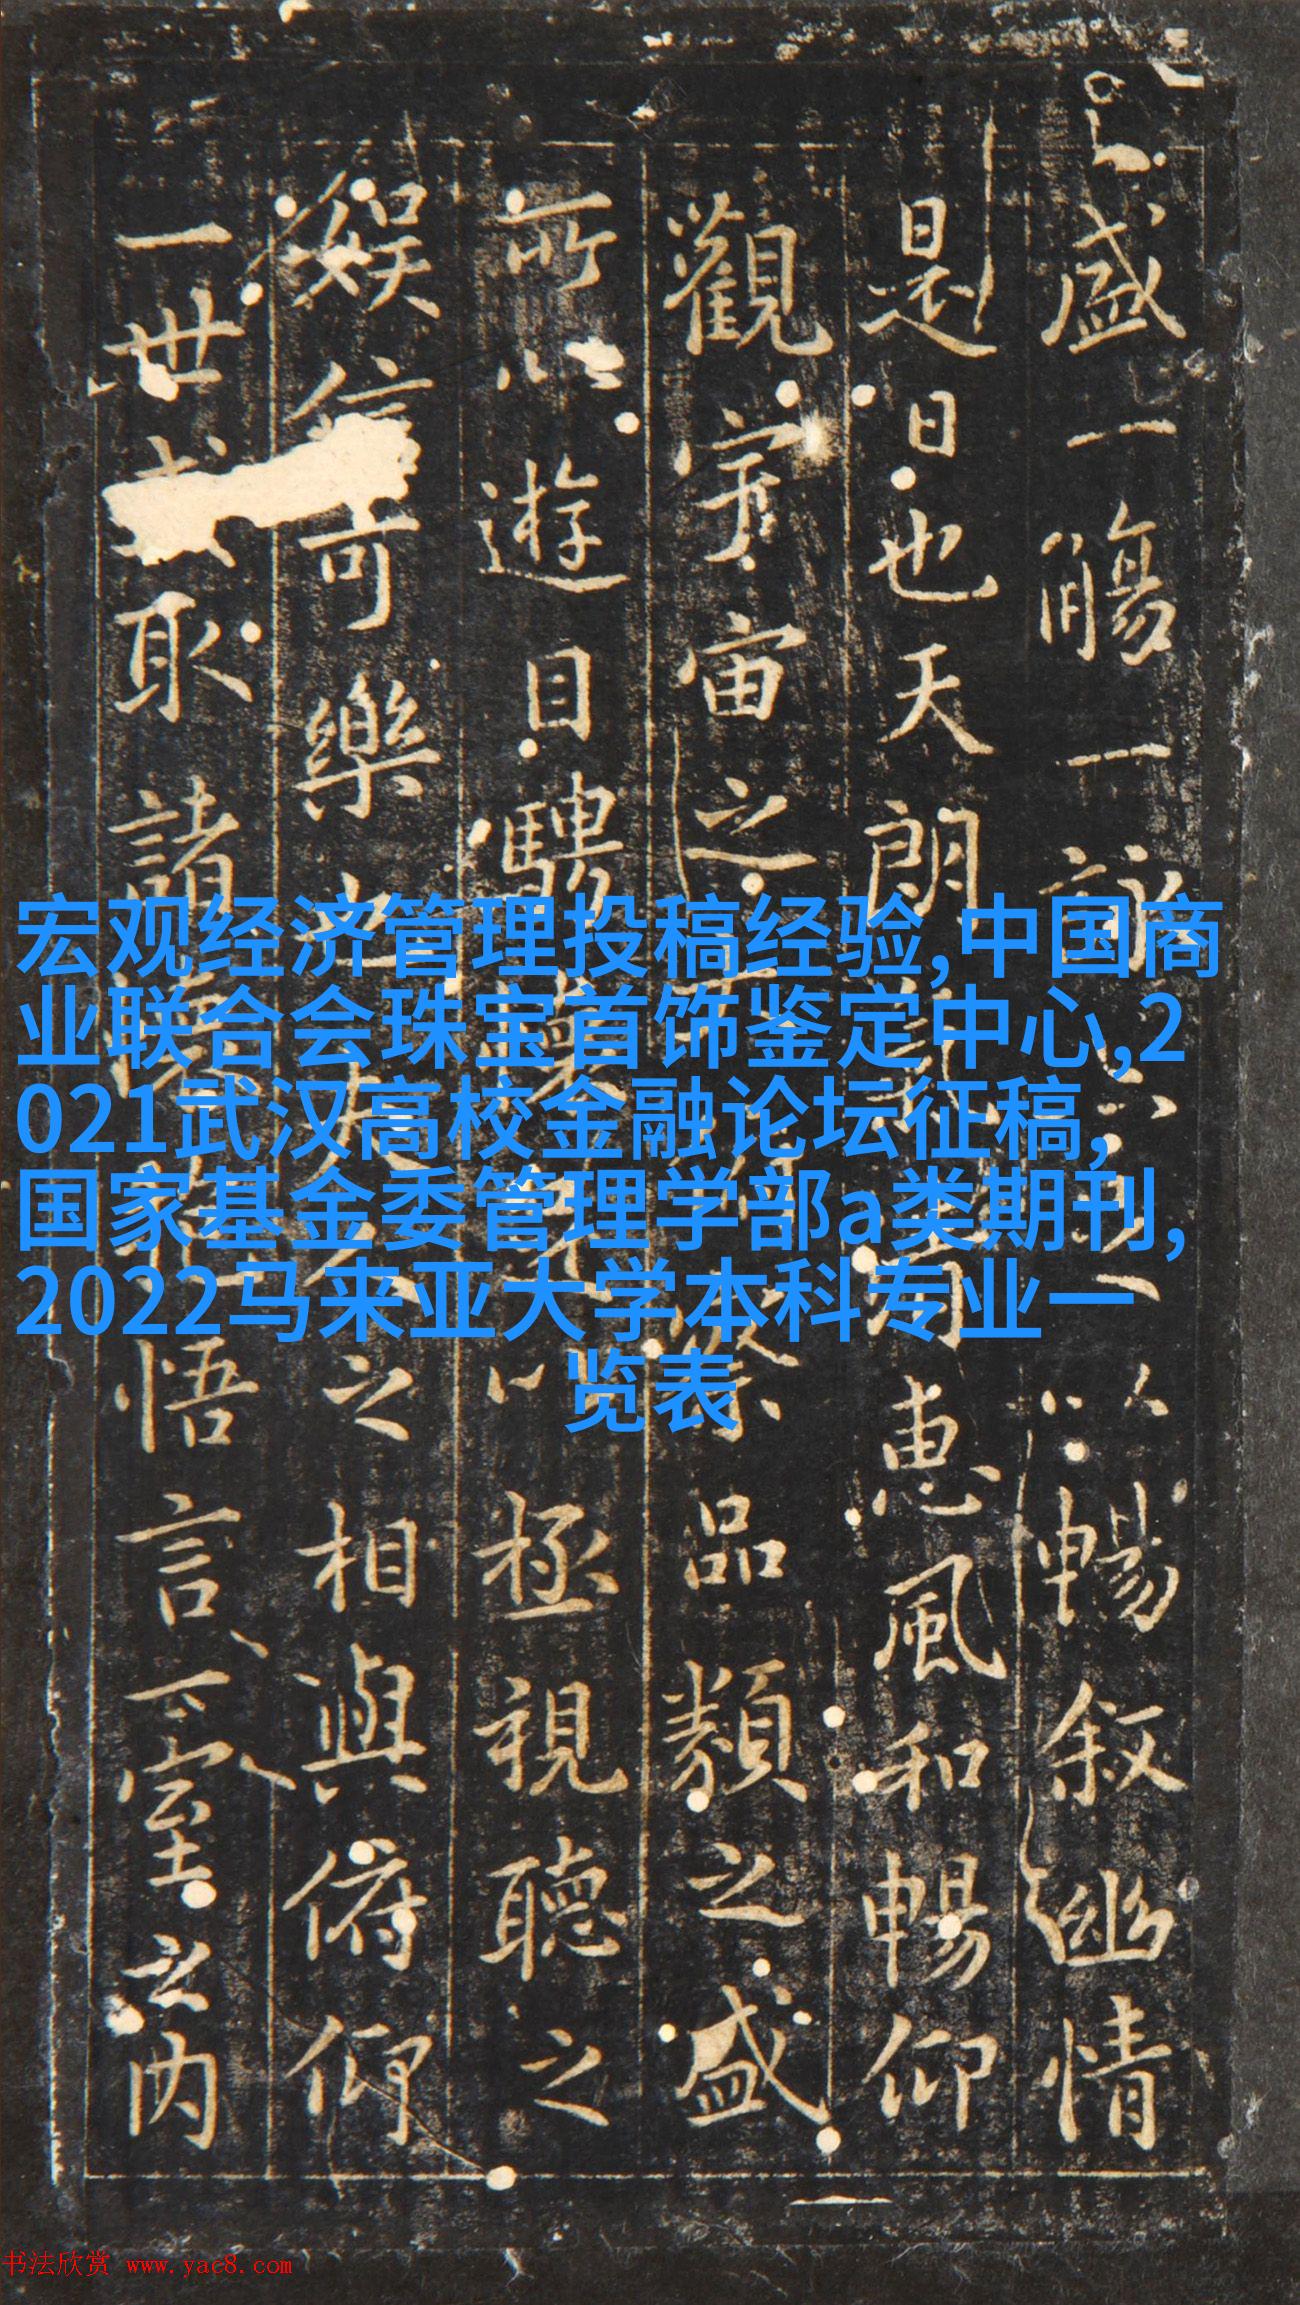 盛一觴一詠以暢叙幽情
是日也天朗清惠風和暢仰
觀宇宙之察品類之盛
所以遊目騁懷以極視聽之
娛信可樂也夫人之相與俯仰
一世取諸懷抱悟言一室之内
宏观经济管理投稿经验,中国商
业联合会珠宝首饰鉴定中心,2
021武汉高校金融论坛征稿,
国家基金委管理学部a类期刊,
2022马来亚大学本科专业一
览表
书法欣赏 www.yac8.com